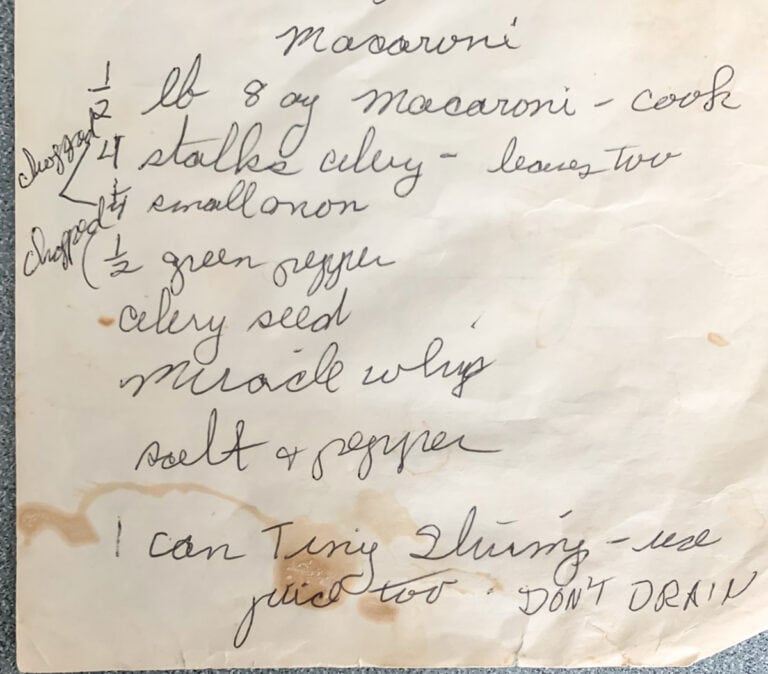 Macaroni
1/2 lb 8 oz Macaroni - cook
chopped 4 stalks celery - leaves too
1/4 small onon
chopped 1/2 green pepper
celery seed
Miracle whip
salt & pepper
1 can Tiny Shrimp - use
juice too. DON'T DRAIN